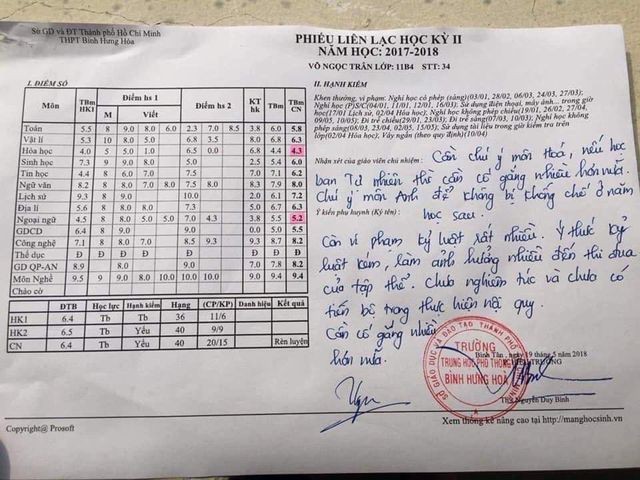 Sở GD và ĐT Thành phố Hồ Chí Minh
THPT Bình Hưng Hòa
PHIẾU LIÊN LẠC HỌC KỲ II
NĂM HỌC: 2017-2018
VÕ NGỌC TRÂN LỚP: 11B4 STT: 34
I. ĐIỂM SỐ
Môn TBm HK1 Điểm hs 1 Điểm hs 2 KT hk TBm hk TBm CN
M Viết
Toán 5.5 8 9.0 8.0 6.0 2.3 7.0 8.5 3.8 6.0 5.8
Vật lí 5.3 10 8.0 5.0 6.8 3.5 8.0 6.8 6.3
Hóa học 4.0 5 5.0 1.0 6.5 0.0 6.8 4.4 4.3
Sinh học 7.3 9 9.0 8.0 5.0 2.5 5.4 6.0
Tin học 4.4 8 6.0 7.0 8.0 7.1 6.2
Ngữ văn 8.2 8 9.0 7.0 8.0 7.5 8.0 8.3 7.9 8.0
Lịch sử 9.3 8 9.0 10.0 2.0 6.1 7.2
Địa lí 5.6 8 8.0 7.3 5.0 6.7 6.3
Ngoại ngữ 4.5 8 8.0 5.0 5.0 7.0 4.3 3.8 5.5 5.2
GDCD 6.4 8 9.0 9.0 0.0 5.0 5.5
Công nghệ 7.1 8 8.0 7.0 8.5 9.3 9.3 8.7 8.2
Thể dục Đ Đ Đ
GD QP-AN 8.9 8.0 7.0 7.8 8.2
Môn Nghề 9.5 9 9.0 8.0 10.0 10.0 10.0 9.0 9.4 9.4
Chào cờ
ĐTB Học lực Hạnh kiểm Hạng (CP/KP) Danh hiệu Kết quả
HK1 6.4 Tb Tb 36 11/6
HK2 6.5 Tb Yếu 40 9/9
CN 6.4 Tb Yếu 40 20/15 Rèn luyện
II. HẠNH KIỂM
Khen thưởng, vi phạm: Nghỉ học có phép (sáng)(03/01, 28/02, 06/03, 24/03, 27/03);
Nhận xét của giáo viên chủ nhiệm: Cần chú ý môn Hoá, nếu học
ban Tự nhiên thì cần cố gắng nhiều hơn nữa.
Chú ý môn Anh để không bị khống chế ở năm
học sau.
Ý kiến phụ huynh (Ký tên):
Còn vi phạm kỷ luật rất nhiều. Ý thức kỷ
luật kém, làm ảnh hưởng nhiều đến thi đua
của tập thể. Chưa nghiêm túc và chưa có
tiến bộ trong thực hiện nội quy.
Cần cố gắng nhiều
hơn nữa.
Bình Tân, ngày 19 tháng 5 năm 2018
SỞ GIÁO DỤC VÀ ĐÀO TẠO THÀNH PHỐ
TRƯỜNG
TRUNG HỌC PHỔ THÔNG
BÌNH HƯNG HOÀ
Nguyễn Duy Bình
Copyright@ Prosoft
Xem thông kê nâng cao tại http://manghocsinh.vn